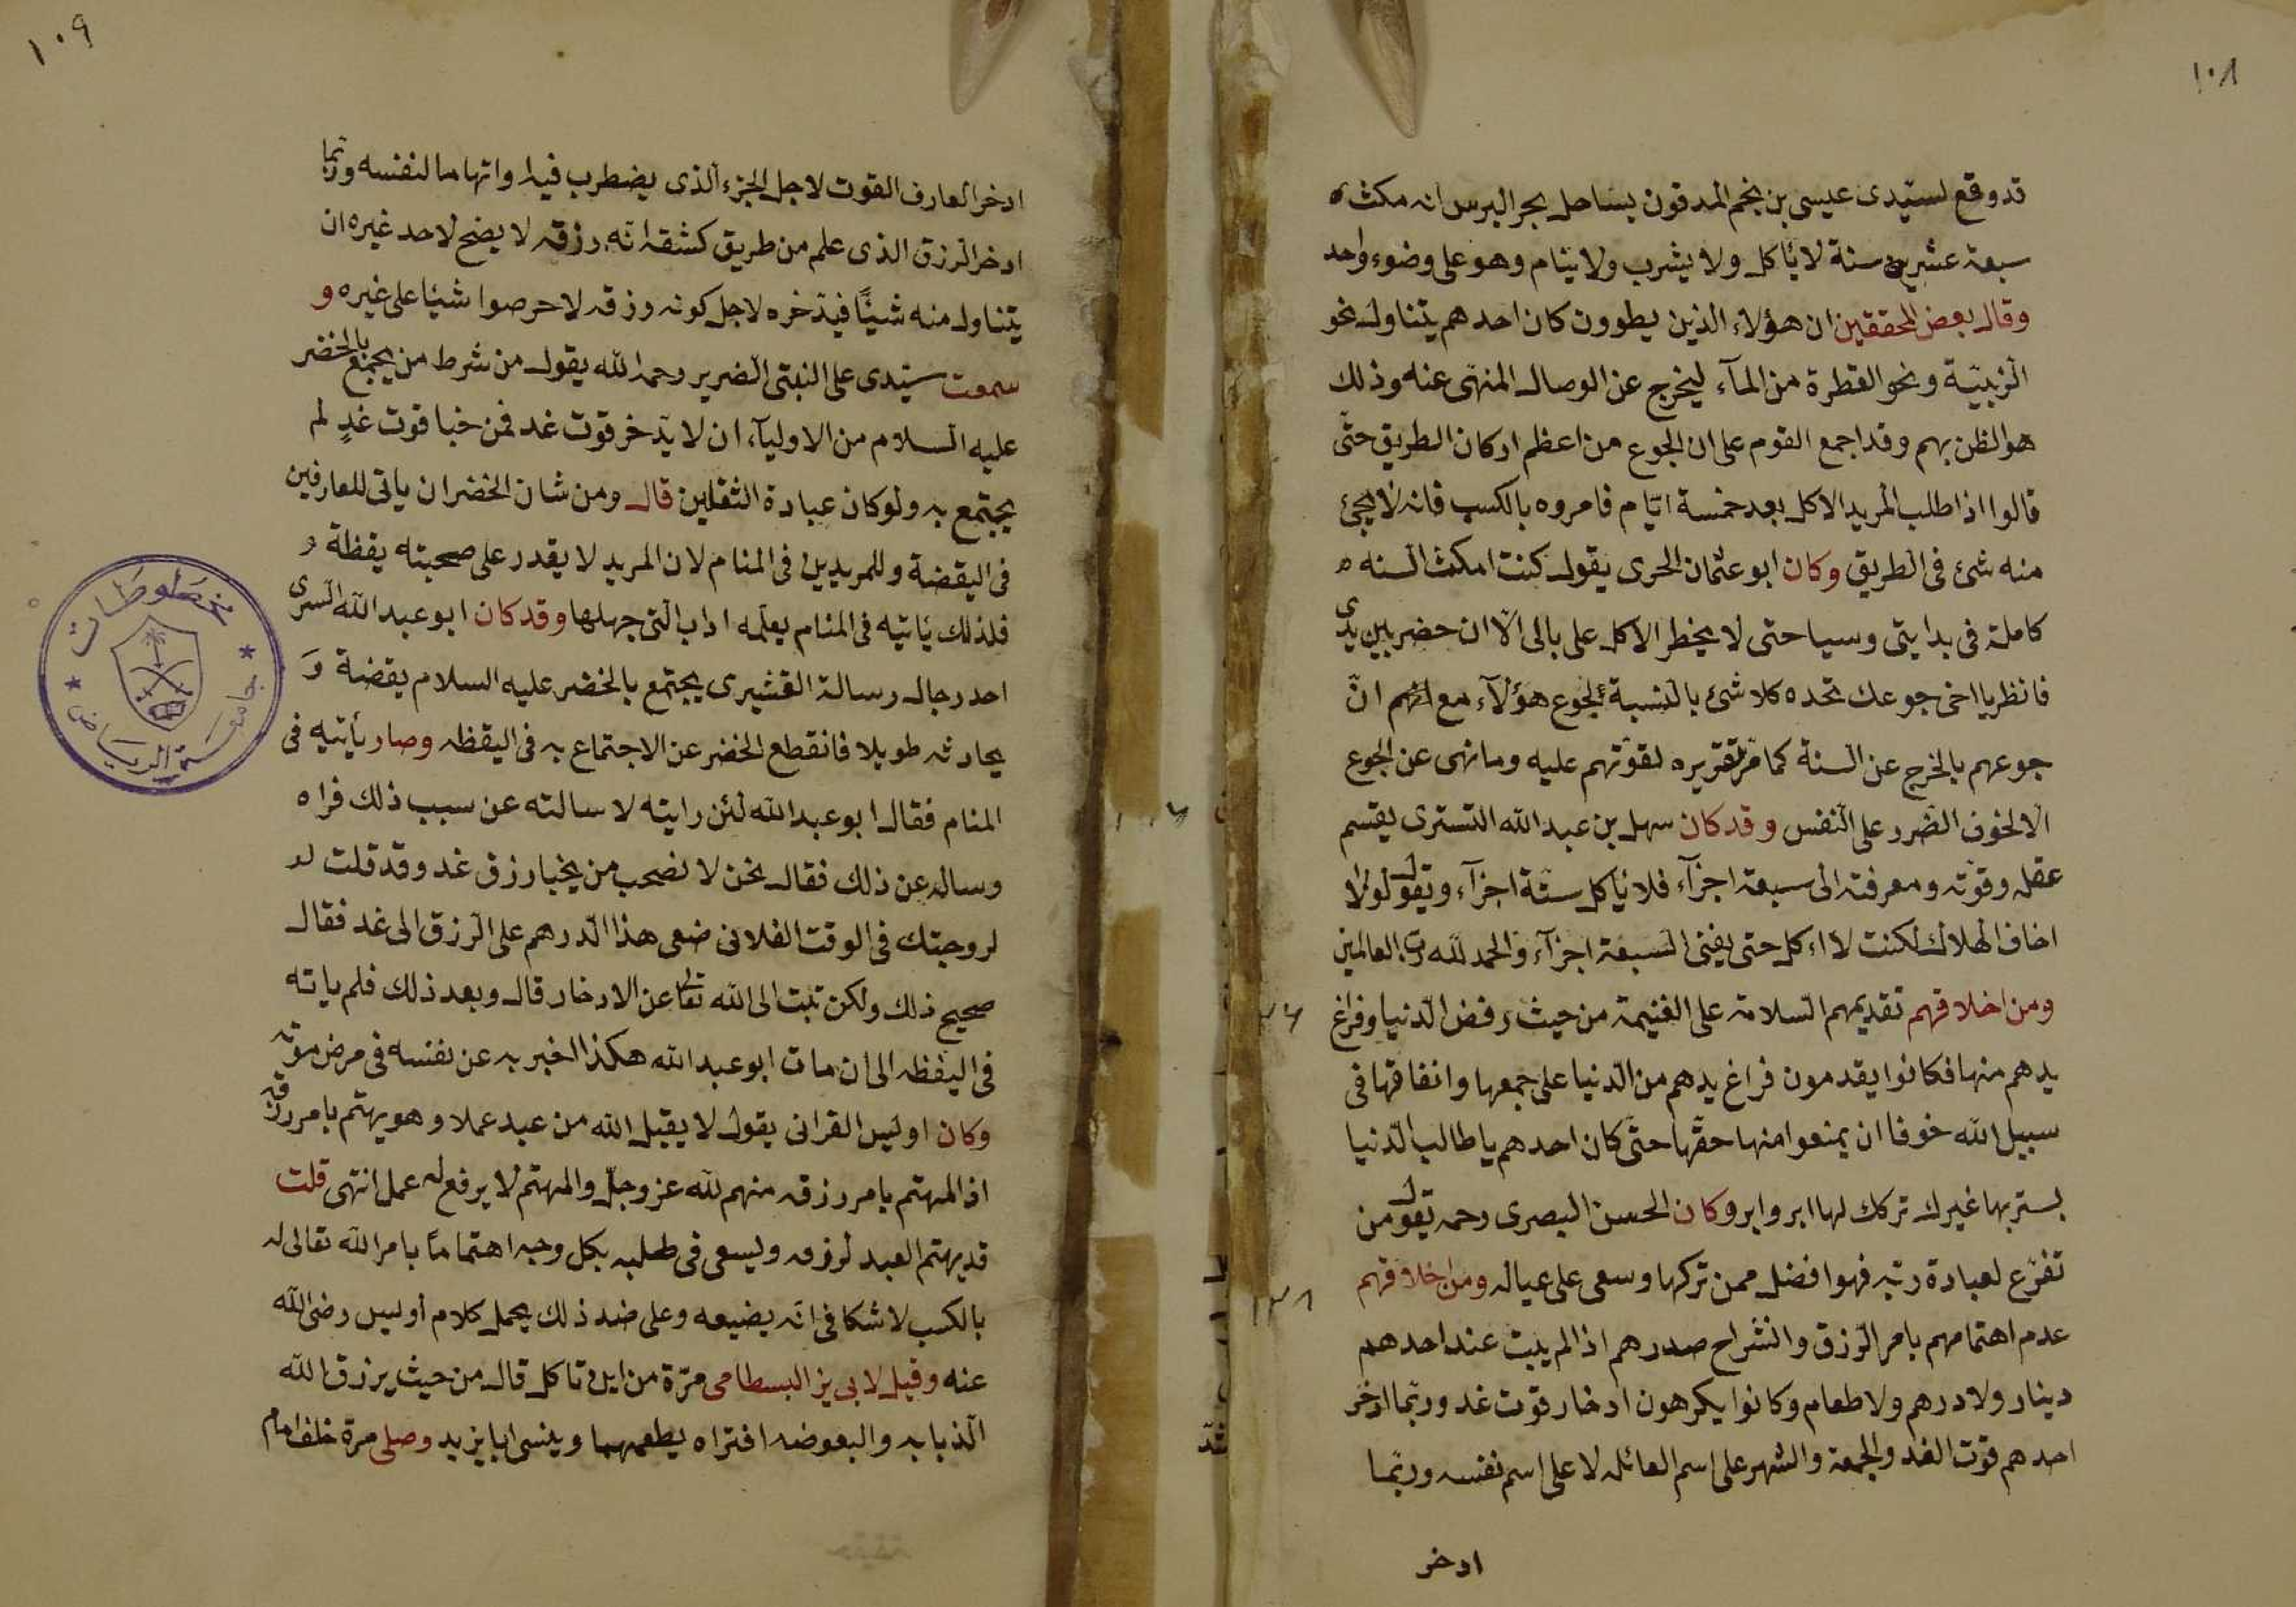 ١٠٨
قد وقع لسيّدى عيسى بن نجم المدفون بساحل بحر البرس انه مكث ه
سبعة عشرين سنة لا يأكل ولا يشرب ولا ينام وهو على وضوء واحد
وقال بعض المحققين ان هؤلاء الذين يطوون كان احدهم يتناول نحو
الزبيبة ونحو القطرة من المآء ليخرج عن الوصال المنهى عنه وذلك
هو الظن بهم وقد اجمع القوم على ان الجوع من اعظم اركان الطريق حتّى
قالوا اذا طلب المريد الاكل بعد خمسة ايّام فامروه بالكسب فانه لا يجئ
منه شئ فى الطريق وكان ابو عثمان الحرى يقول كنت امكث السنه ه
كاملة فى بدايتى وسياحتى لا يخطر الاكل على بالى الّا ان حضر بين يدى
فانظر يا اخى جوعك تجده كلا شئ بالنسبة لجوع هؤلآء مع انهم انّ
جوعهم بالخرج عن السنة كما مرّ تقريره لقوّتهم عليه وما نهى عن الجوع
الّا لخوف الضرر على النفس وقد كان سهل بن عبد الله التسترى يقسم
عقله وقوّته ومعرفته الى سبعة اجزآء فلا يأكل ستّة اجزآء ويقول لولا
اخاف الهلاك لكنت لا اءكل حتى يفنى السبعة اجزآء والحمد لله ربّ العالمين
ومن اخلاقهم تقديمهم السلامة على الغنيمة من حيث رفض الدنيا وفراغ
يدهم منها فكانوا يقدمون فراغ يدهم من الدنيا على جمعها وانفاقها فى
سبيل الله خوفا ان يمنعوا منها حقّها حتّى كان احدهم يا طالب الدنيا
لستر بها غيرك تركك لها ابر وابر وكان الحسن البصرى رحمه يقول من
تفرّغ لعبادة ربّه فهو افضل ممن تركها وسعى على عياله ومن اخلاقهم
عدم اهتمامهم بامر الرزق وانشراح صدرهم اذا لم يبت عند احدهم
دينار ولا درهم ولا طعام وكانوا يكرهون ادخار قوت غد وربّما ادّخر
احدهم قوت الغد والجمعة والشهر على اسم العائله لا على اسم نفسه وربّما
ادخر
١٠٩
ادخر العارف القوت لاجل الجزء الذى يضطرب فيه واتهاما لنفسه وربّما
ادخر الرزق الذى علم من طريق كشفه انّه رزقه لا يضح لاحد غيره ان
يتناول منه شيئًا فيدّخره لاجل كونه رزقه لا حرصوا شيئا على غيره و
سمعت سيّدى على النبتى الضرير رحمه الله يقول من شرط من يجتمع بالخضر
عليه السلام من الاوليآء ان لا يدّخر قوت غد فمن خبا قوت غدٍ لم
يجتمع به ولو كان عبادة الثقلين قال ومن شان الخضر ان ياتى للعارفين
فى اليقضة وللمريدين فى المنام لان المريد لا يقدر على صحبته يقظة و
فلذلك يأتيه فى المنام يعلّمه اداب التى جهلها وقد كان ابو عبد الله السرى
احد رجال رسالة القشيرى يجتمع بالخضر عليه السلام يقضة وَ
يحادثه طويلا فانقطع الخضر عن الاجتماع به فى اليقظه وصار يأتيه فى
المنام فقال ابو عبد الله لئن رايته لا سالته عن سبب ذلك فراه
وساله عن ذلك فقال نحن لا نصحب من يخبا رزق غد وقد قلت له
لزوجتك فى الوقت الفلانى ضعى هذا الدرهم على الرزق الى غد فقال
صحيح ذلك ولكن تبت الى الله تعالى عن الادخار قال وبعد ذلك فلم ياته
فى اليقظه الى ان مات ابو عبد الله هكذا الخبر به عن نفسه فى مرض موته
وكان اوليس القرانى يقول لا يقبل الله من عبد عملا وهو يهتم بامر رزقه
اذ المهتم بامر رزقه منهم لله عز وجلّ والمهتم لا يرفع له عمل انتهى قلت
قد يهتم العبد لرزقه ويسعى فى طلبه بكل وجه اهتمامًا بامر الله تعالى له
بالكسب لا شكا فى انّه يضيعه وعلى ضد ذلك يحمل كلام أوليس رضى الله
عنه وقيل لابى يز البسطامى مرّة من اين تاكل قال من حيث يرزق الله
الذبابه والبعوضه افتراه يطعمهما وينسى ابا يزيد وصلى مرة خلف امام
مخطوطات
جامعة الرياض